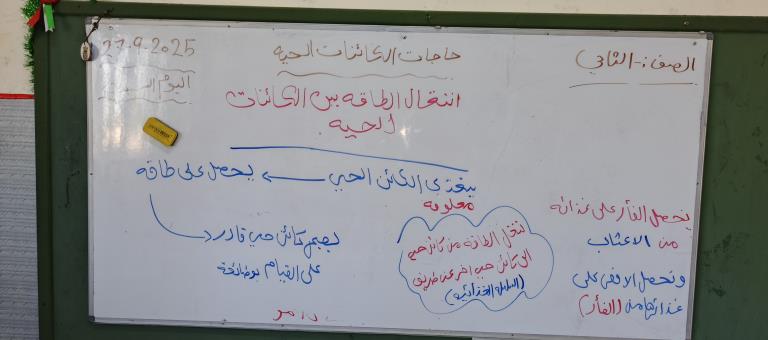 الصف:- الثاني
حاجات الكائنات الحيه
27-9-2025
اليوم
انتقال الطاقه بين الكائنات
الحيه
يتغذى الكائن الحي ← يحصل على طاقه
يصبح كائن حي قادر
على القيام بوظائفه
معلومه
تنتقل الطاقة من كائن حي
الى كائن حي اخر عن طريق
(السلسله الغذائيه)
يحصل الفأر على غذائه
من الاعشاب
وتحصل الافعى على
غذائها من (الفأر)